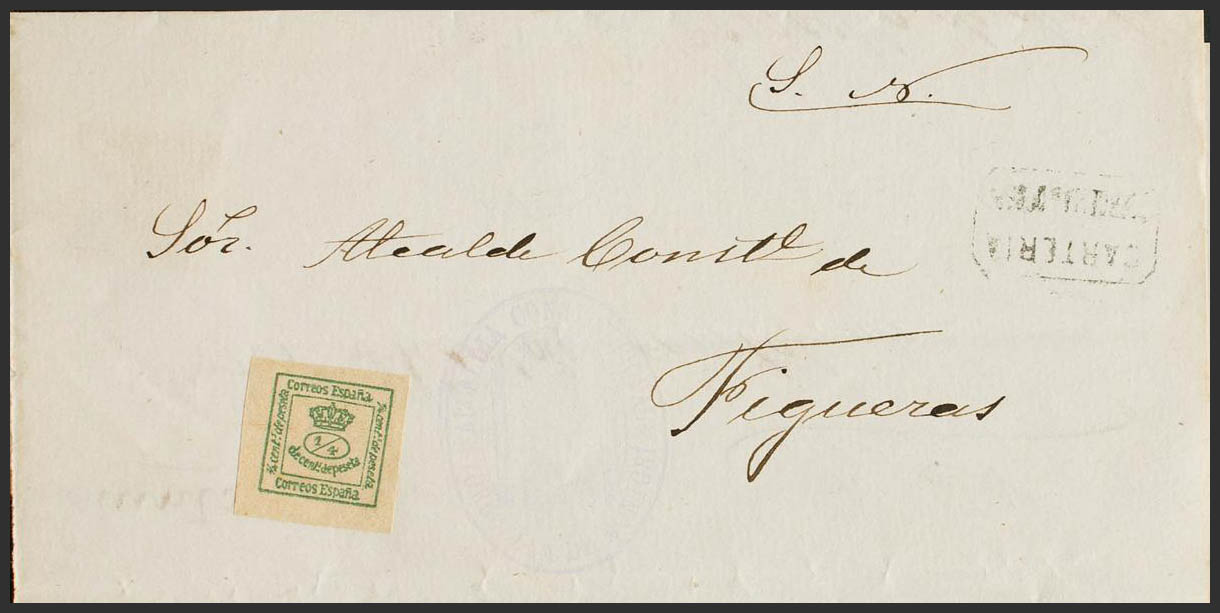 S. N.
Sór. Alcalde Constl. de
Figueras
CARTERIA
Correos España
¼ cent. de peseta
¼ cent. de peseta
1/4
de cent. de peseta
Correos España